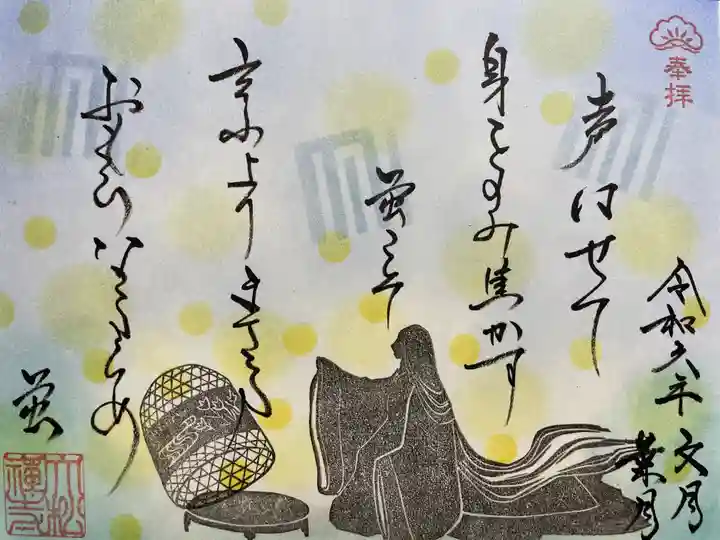 奉拝
声はせて
身をのみ焦かす
蛍こそ
言ふよりまさる
おもひなるらめ
蛍
令和六年 文月
葉月